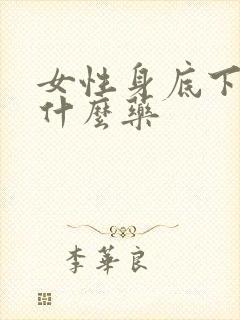 女性身底下
什麼藥
李華良